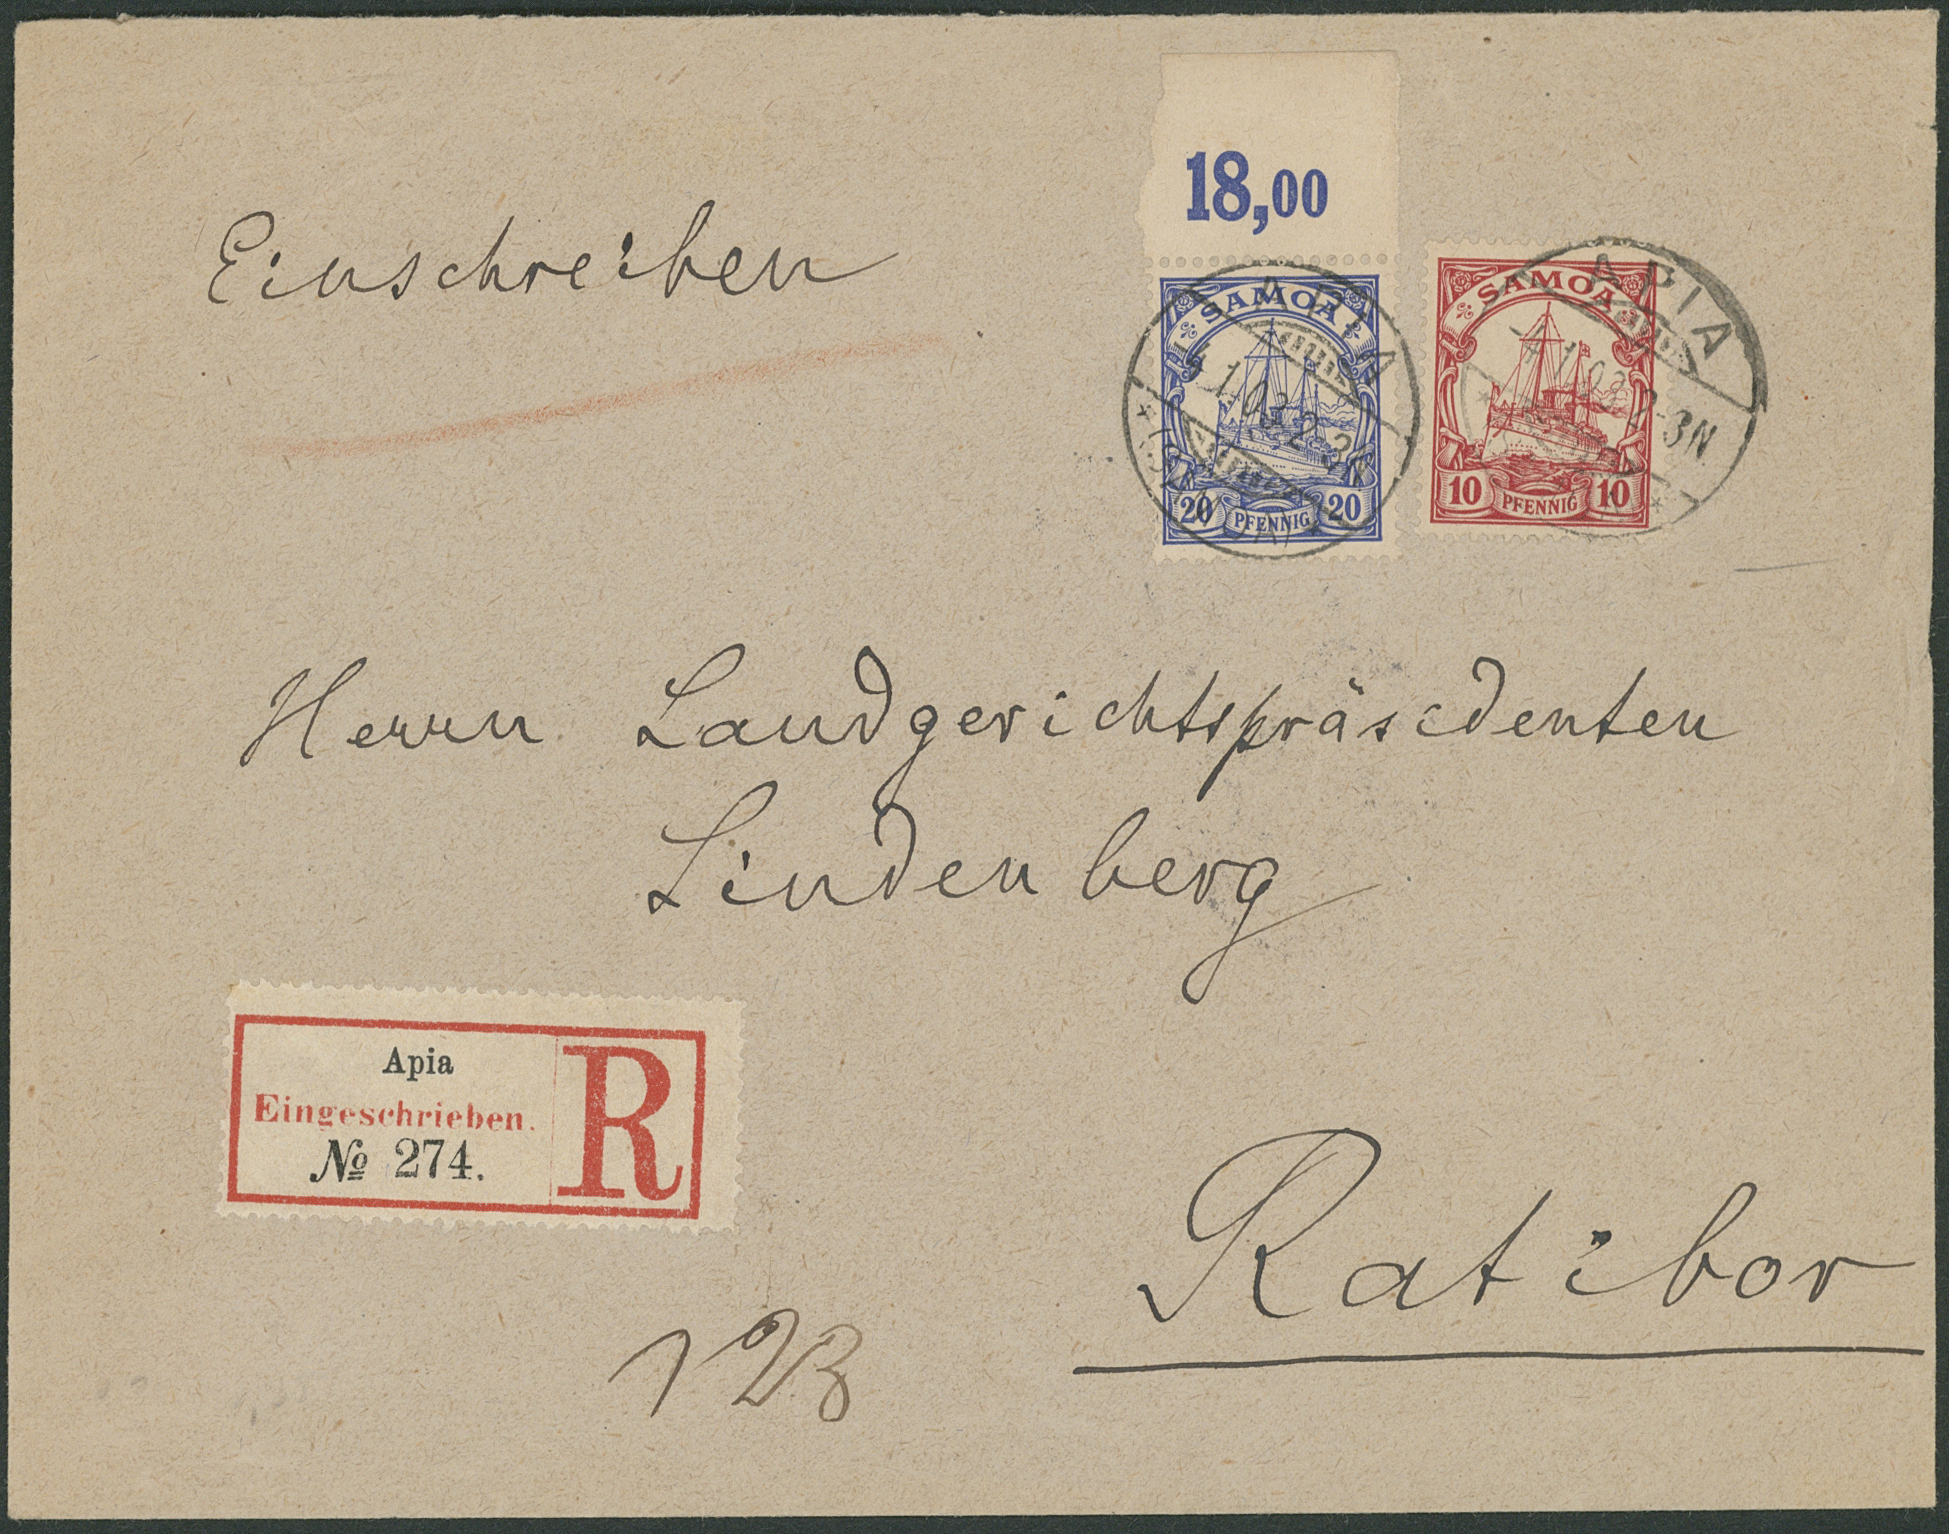 18,00
Einschreiben
SAMOA
20 PFENNIG 20
SAMOA
10 PFENNIG 10
APIA
4.1.03 2-3N
APIA
2-3N
Herrn Landgerichtspräsidenten
Lindenberg
Apia
Eingeschrieben.
№ 274.
R
Ratibor